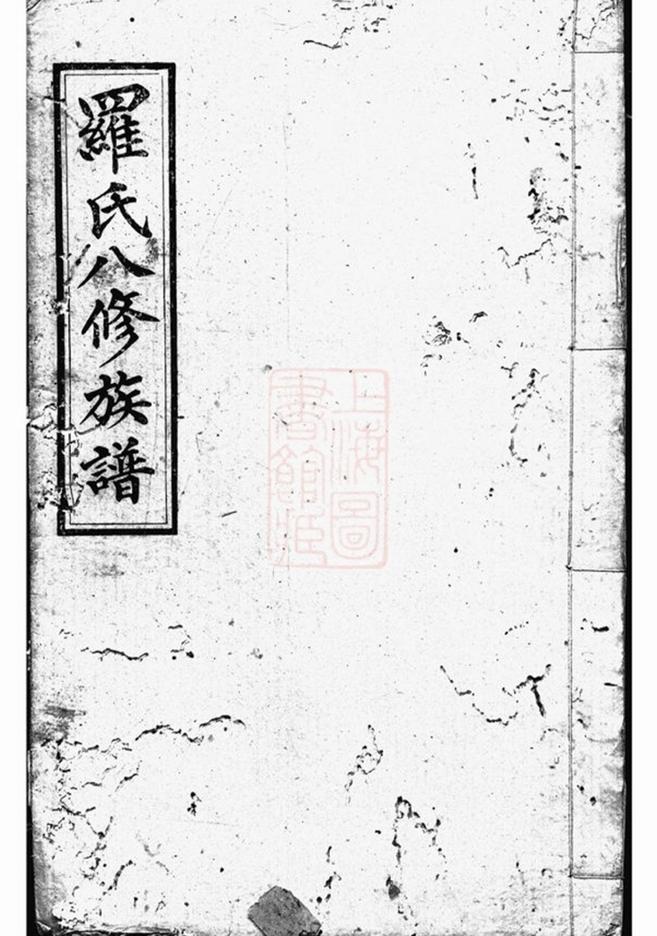 羅氏八修族譜
上海圖
書館藏